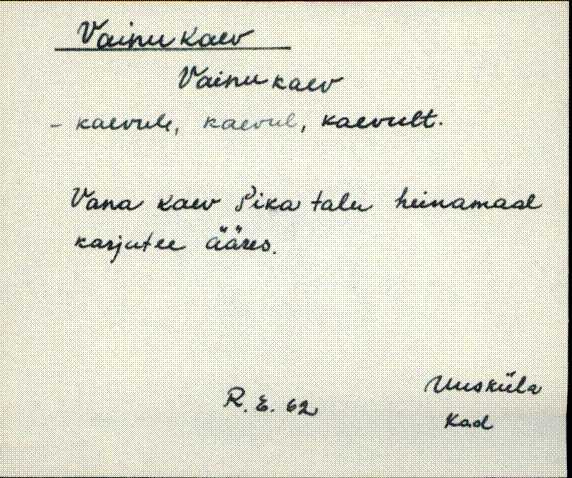 Vainu kaev
Vainu kaev
- kaevule, kaevul, kaevult.
Vana kaev Pika talu heinamaal
karjatee ääres.
R. E. 62
Uusküla
Kad